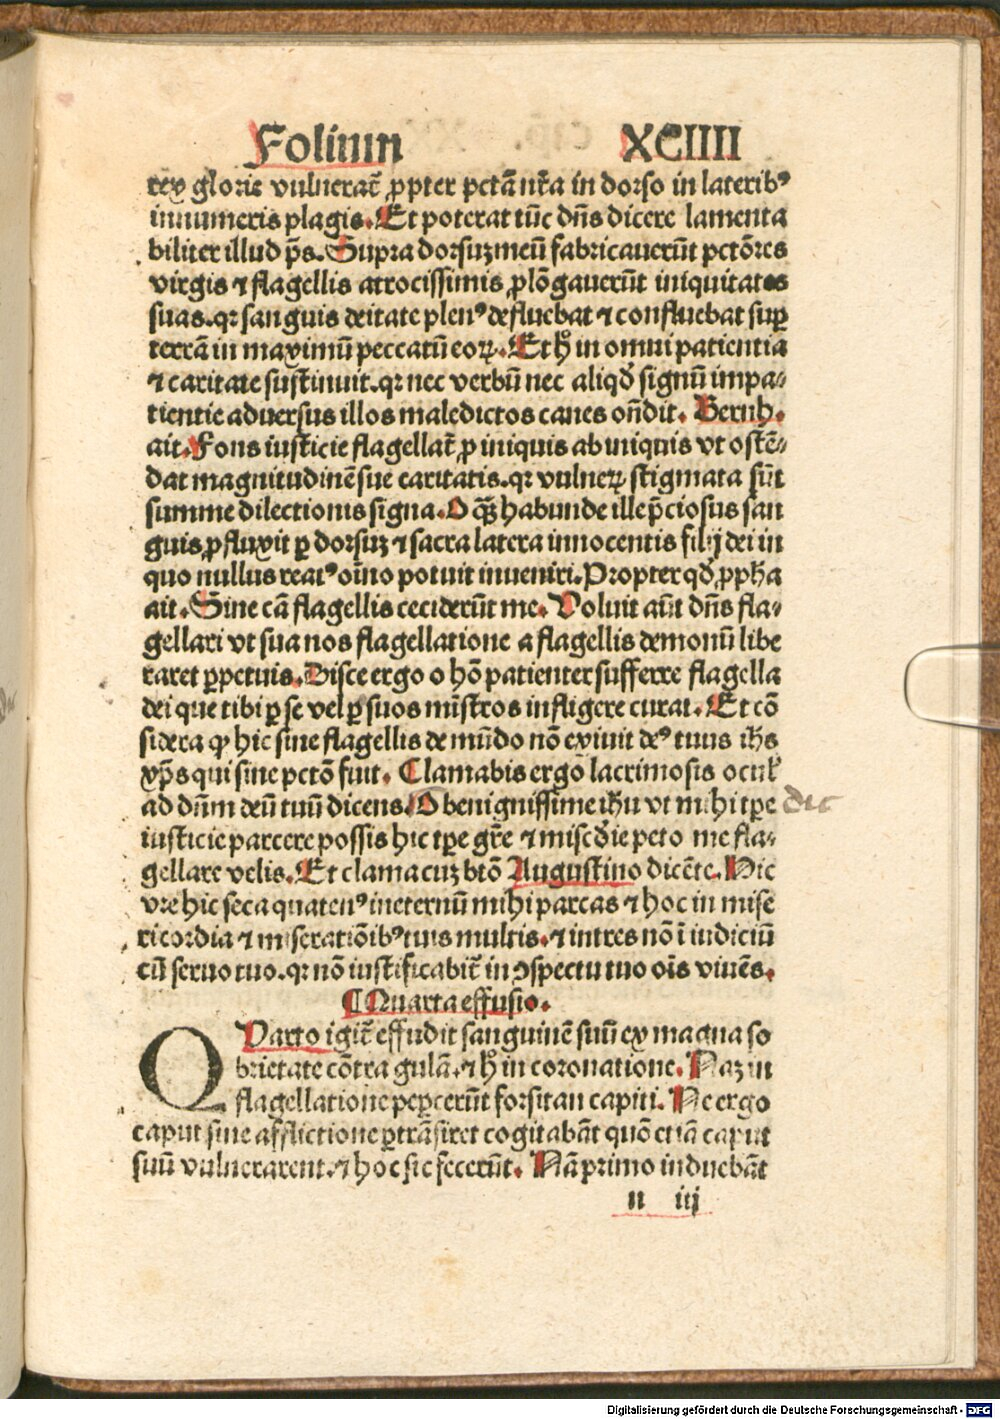 Folium XCIIII
rex glorie vulnerat᷑ ꝓpter pctā nr̄a in dorso in laterib⁹
innumeris plagis. Et poterat tūc dn̄s dicere lamenta
biliter illud ps̄. Supra dorsuꝫ meū fabricauerūt pctōres
virgis ⁊ flagellis atrocissimis ꝓlōgauerūt iniquitates
suas. qꝛ sanguis deitate plen⁹ defluebat ⁊ confluebat suꝑ
terrā in maximū peccatū eoꝝ. Et hͦ in omni patientia
⁊ caritate sustinuit. qꝛ nec verbū nec aliqd̄ signū impa⸗
tientie adversus illos maledictos canes on̄dit. Bernh.
ait. Fons iusticie flagellat᷑ ꝓ iniquis ab iniquis vt ostē⸗
dat magnitudinē sue caritatis. qꝛ vulneꝝ stigmata sūt
summe dilectionis signa. O qꝫ̄ habunde ille p̄ciosus san
guis ꝓfluxit ꝑ dorsuꝫ ⁊ sacra latera innocentis filij dei in
quo nullus reat⁹ oīno potuit inueniri. Propter qd̄ ꝓpha
ait. Sine cā flagellis ceciderūt me. Voluit aūt dn̄s fla⸗
gellari vt sua nos flagellatione a flagellis demonū libe
raret ꝑpetuis. Disce ergo o hō patienter sufferre flagella
dei que tibi ꝑ se vel ꝑ suos mīstros infligere curat. Et cō
sidera ꝙ hic sine flagellis de mūdo nō exiuit de⁹ tuus ihs
xp̄s qui sine pctō fuit. Clamabis ergo lacrimosis ocul̓
ad dn̄m deū tuū dicens. O benignissime ihu vt mihi tꝑe dic
iusticie parcere possis hic tꝑe gr̄e ⁊ misc̄die peto me fla⸗
gellare velis. Et clama cuꝫ btō Augustino dicēte. Hic
vre hic seca quaten⁹ in eternū mihi parcas ⁊ hoc in mise
ricordia ⁊ miseratiōib⁹ tuis multis. ⁊ intres nō ī iudiciū
cū seruo tuo. qꝛ nō iustificabit᷑ in ꝯspectu tuo oīs viuēs.
¶ Quarta effusio.
QVarto igit᷑ effudit sanguinē suū ex magna so
brietate cōtra gulā. ⁊ hͦ in coronatione. Naꝫ in
flagellatione peꝑcerūt forsitan capiti. Ne ergo
caput sine afflictione ꝑtrāsiret cogitabāt quō etiā caput
suū vulnerarent. ⁊ hoc sic fecerūt. Nā primo induebāt
n iij
Digitalisierung gefördert durch die Deutsche Forschungsgemeinschaft - DFG